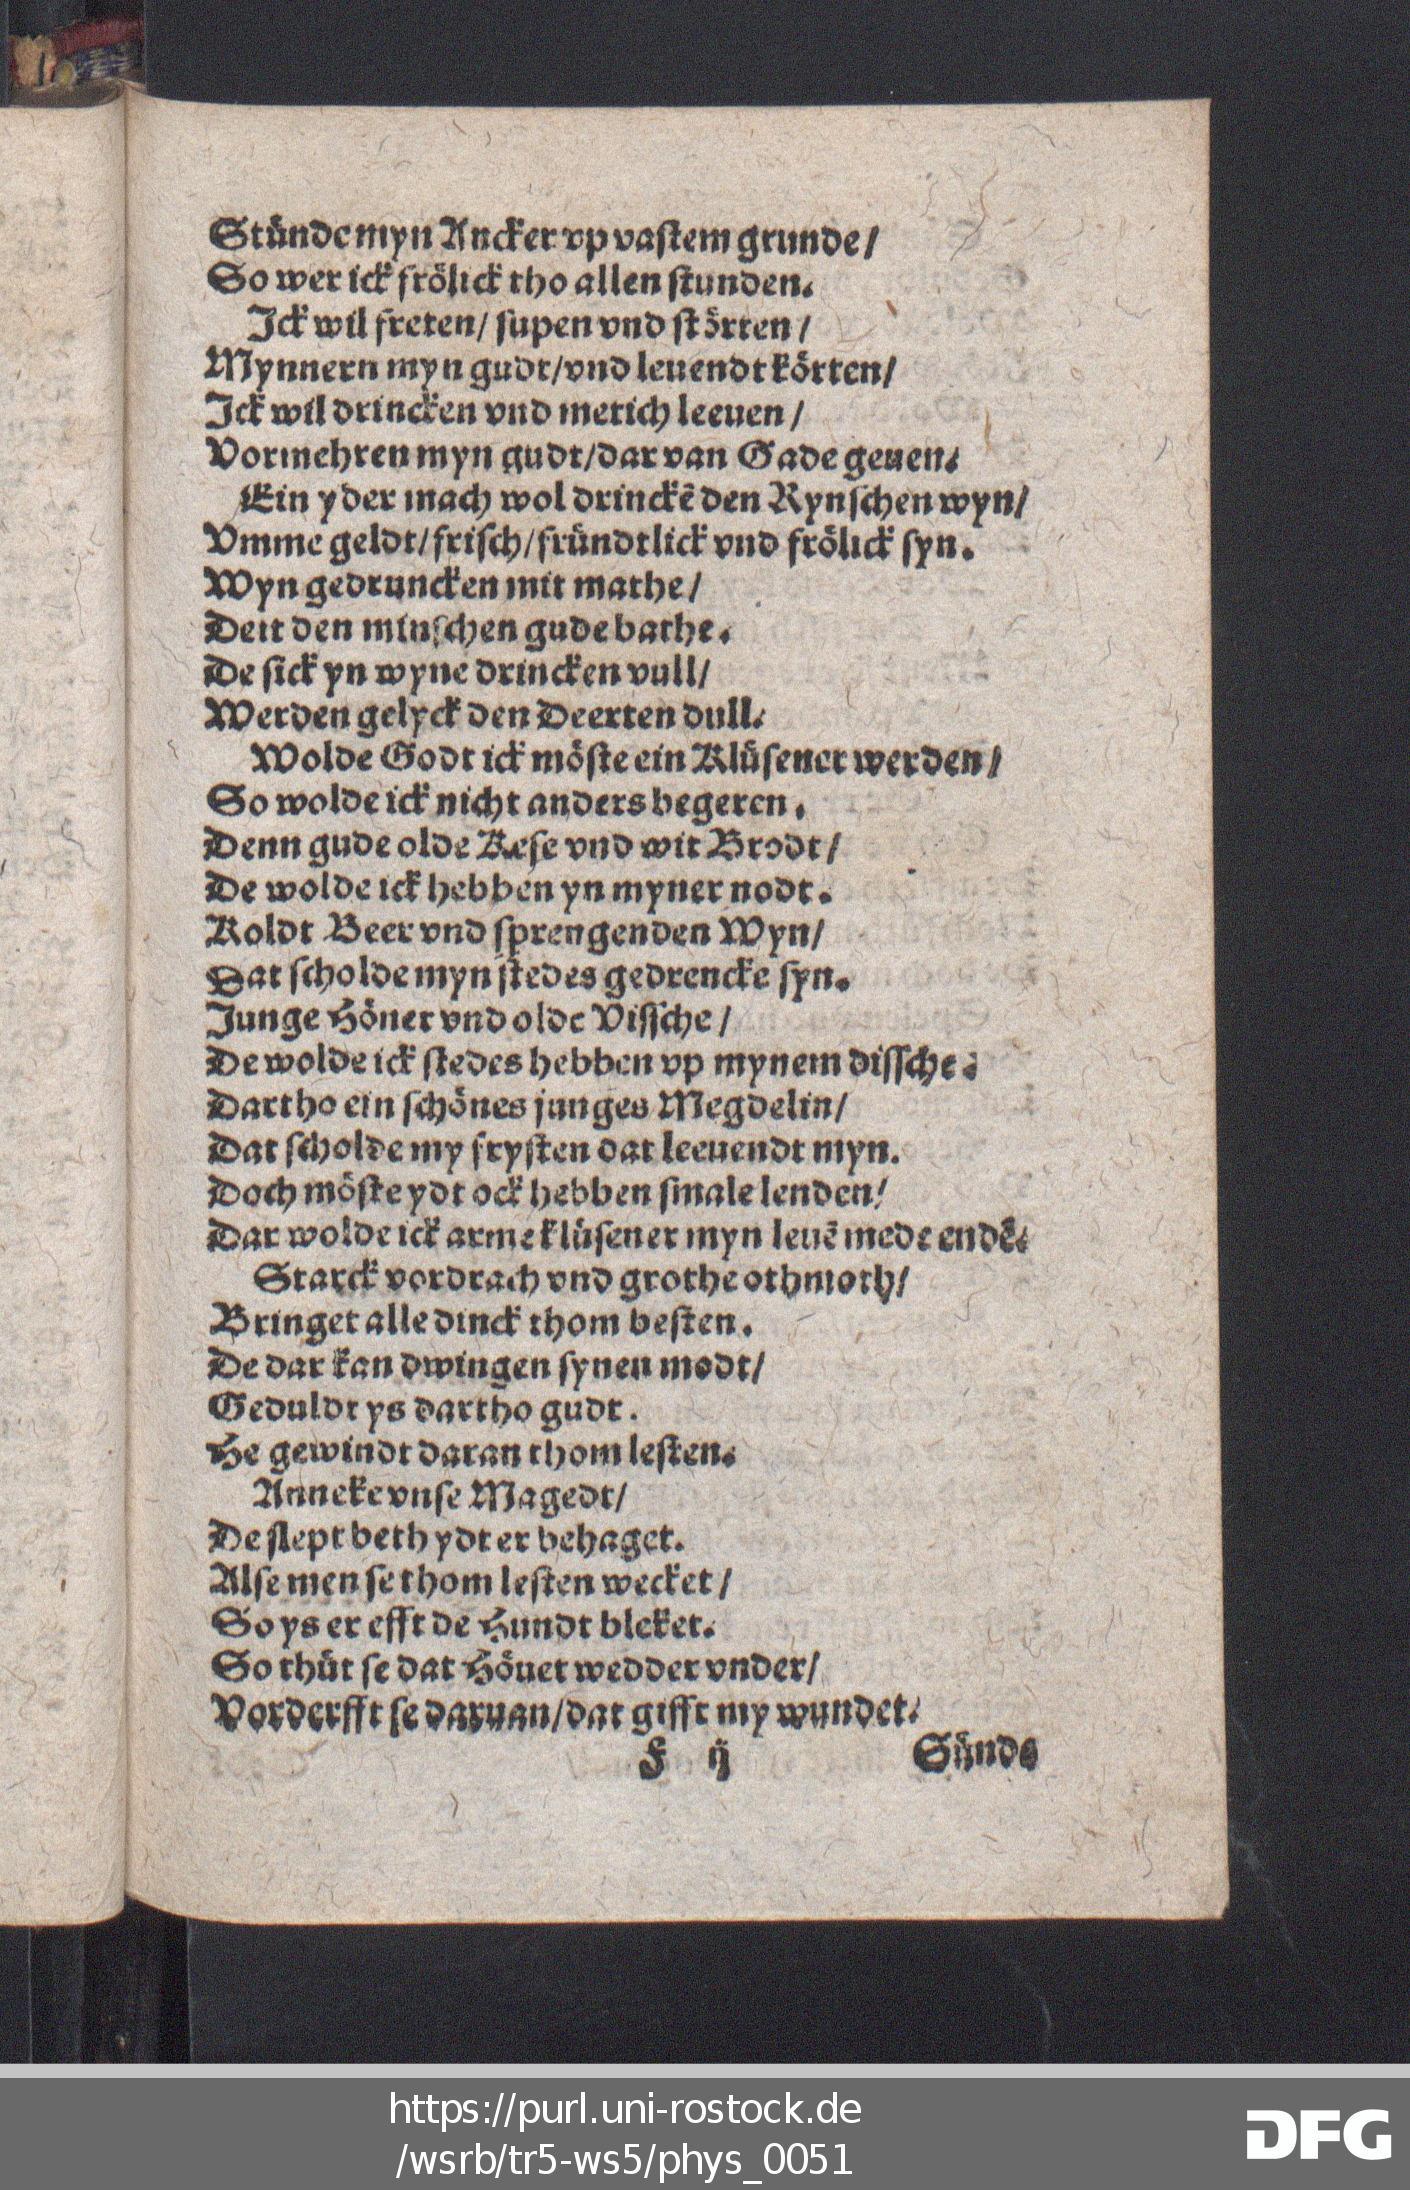 Stünde myn Ancker vp vastem grunde/
So wer ick frölick tho allen stunden.
Ick wil freten/ supen vnd störten/
Mynnern myn gudt/vnd leuendt körten/
Ick wil drincken vnd metich leeuen/
Vormehren myn gudt/dar van Gade geuen.
Ein yder mach wol drinckē den Rynschen wyn/
Vmme geldt/frisch/fründtlick vnd frölick syn.
Wyn gedruncken mit mathe/
Deit den minschen gude bathe.
De sick yn wyne drincken vull/
Werden gelyck den Deerten dull.
Wolde Godt ick möste ein Klüsener werden/
So wolde ick nicht anders begeren.
Denn gude olde Kese vnd wit Brodt/
De wolde ick hebben yn myner nodt.
Koldt Beer vnd sprengenden Wyn/
Dat scholde myn stedes gedrencke syn.
Junge Höner vnd olde Vissche/
De wolde ick stedes hebben vp mynem dissche.
Dartho ein schönes junges Megdelin/
Dat scholde my frysten dat leeuendt myn.
Doch möste ydt ock hebben smale lenden/
Dar wolde ick arme klüsener myn leuē mede endē.
Starck vordrach vnd grothe othmoth/
Bringet alle dinck thom besten.
De dar kan dwingen synen modt/
Geduldt ys dartho gudt.
He gewindt daran thom lesten.
Anneke vnse Magedt/
De slept beth ydt er behaget.
Alse men se thom lesten wecket/
So ys er efft de Hundt bleket.
So thüt se dat Höuet wedder vnder/
Vorderfft se daruan/dat gifft my wunder.
F ij Sünde
https://purl.uni-rostock.de
/wsrb/tr5-ws5/phys_0051
DFG